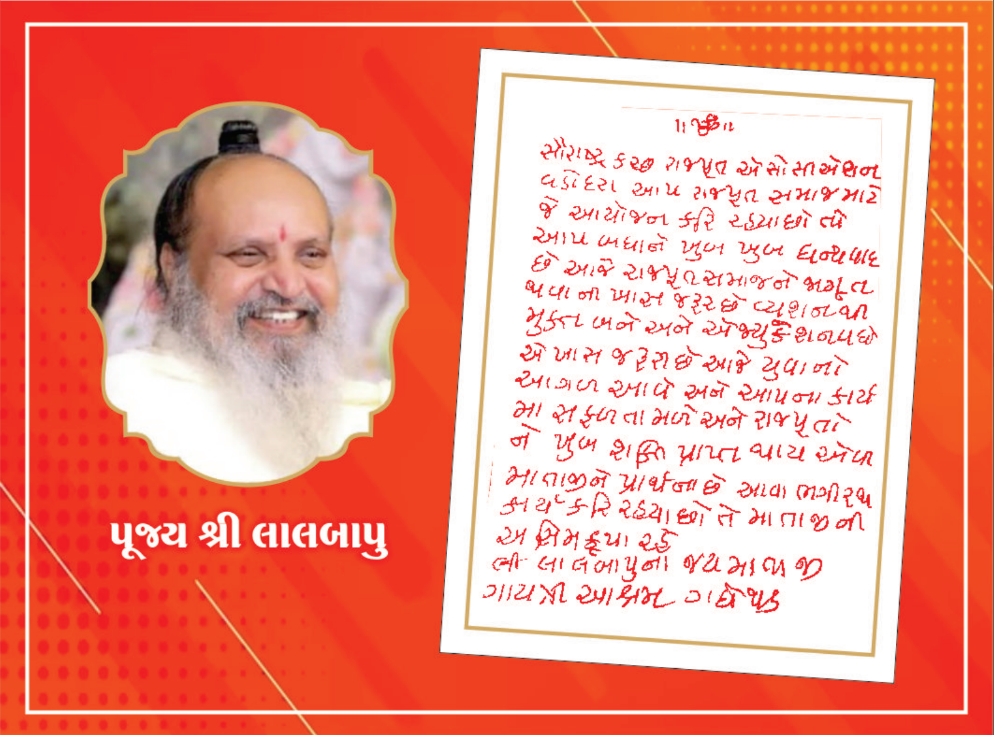 ॥ ૐ ॥
સૌરાષ્ટ્ર કચ્છ રાજપૂત એસોસીએશન
વડોદરા આપ રાજપૂત સમાજ માટે
જે આયોજન કરિ રહયા છો તે
આપ બધાને ખુબ ખુબ ધન્યવાદ
છે આજે રાજપૂત સમાજને જાગૃત
થવાની ખાસ જરૂર છે વ્યશનથી
મુક્ત બને અને એજ્યુકેશન વધે
એ ખાસ જરૂરી છે આજે યુવાનો
આગળ આવે અને આપના કાર્ય
મા સફળતા મળે અને રાજપૂતો
ને ખુબ શક્તિ પ્રાપ્ત થાય એવી
માતાજીને પ્રાર્થના છે આવા ભગીરથ
કાર્ય કરિ રહયા છો તે માતાજીની
અસિમ કૃપા રહે
લી લાલબાપુના જય માતાજી
ગાયત્રી આશ્રમ ગધેથડ
પૂજ્ય શ્રી લાલબાપુ